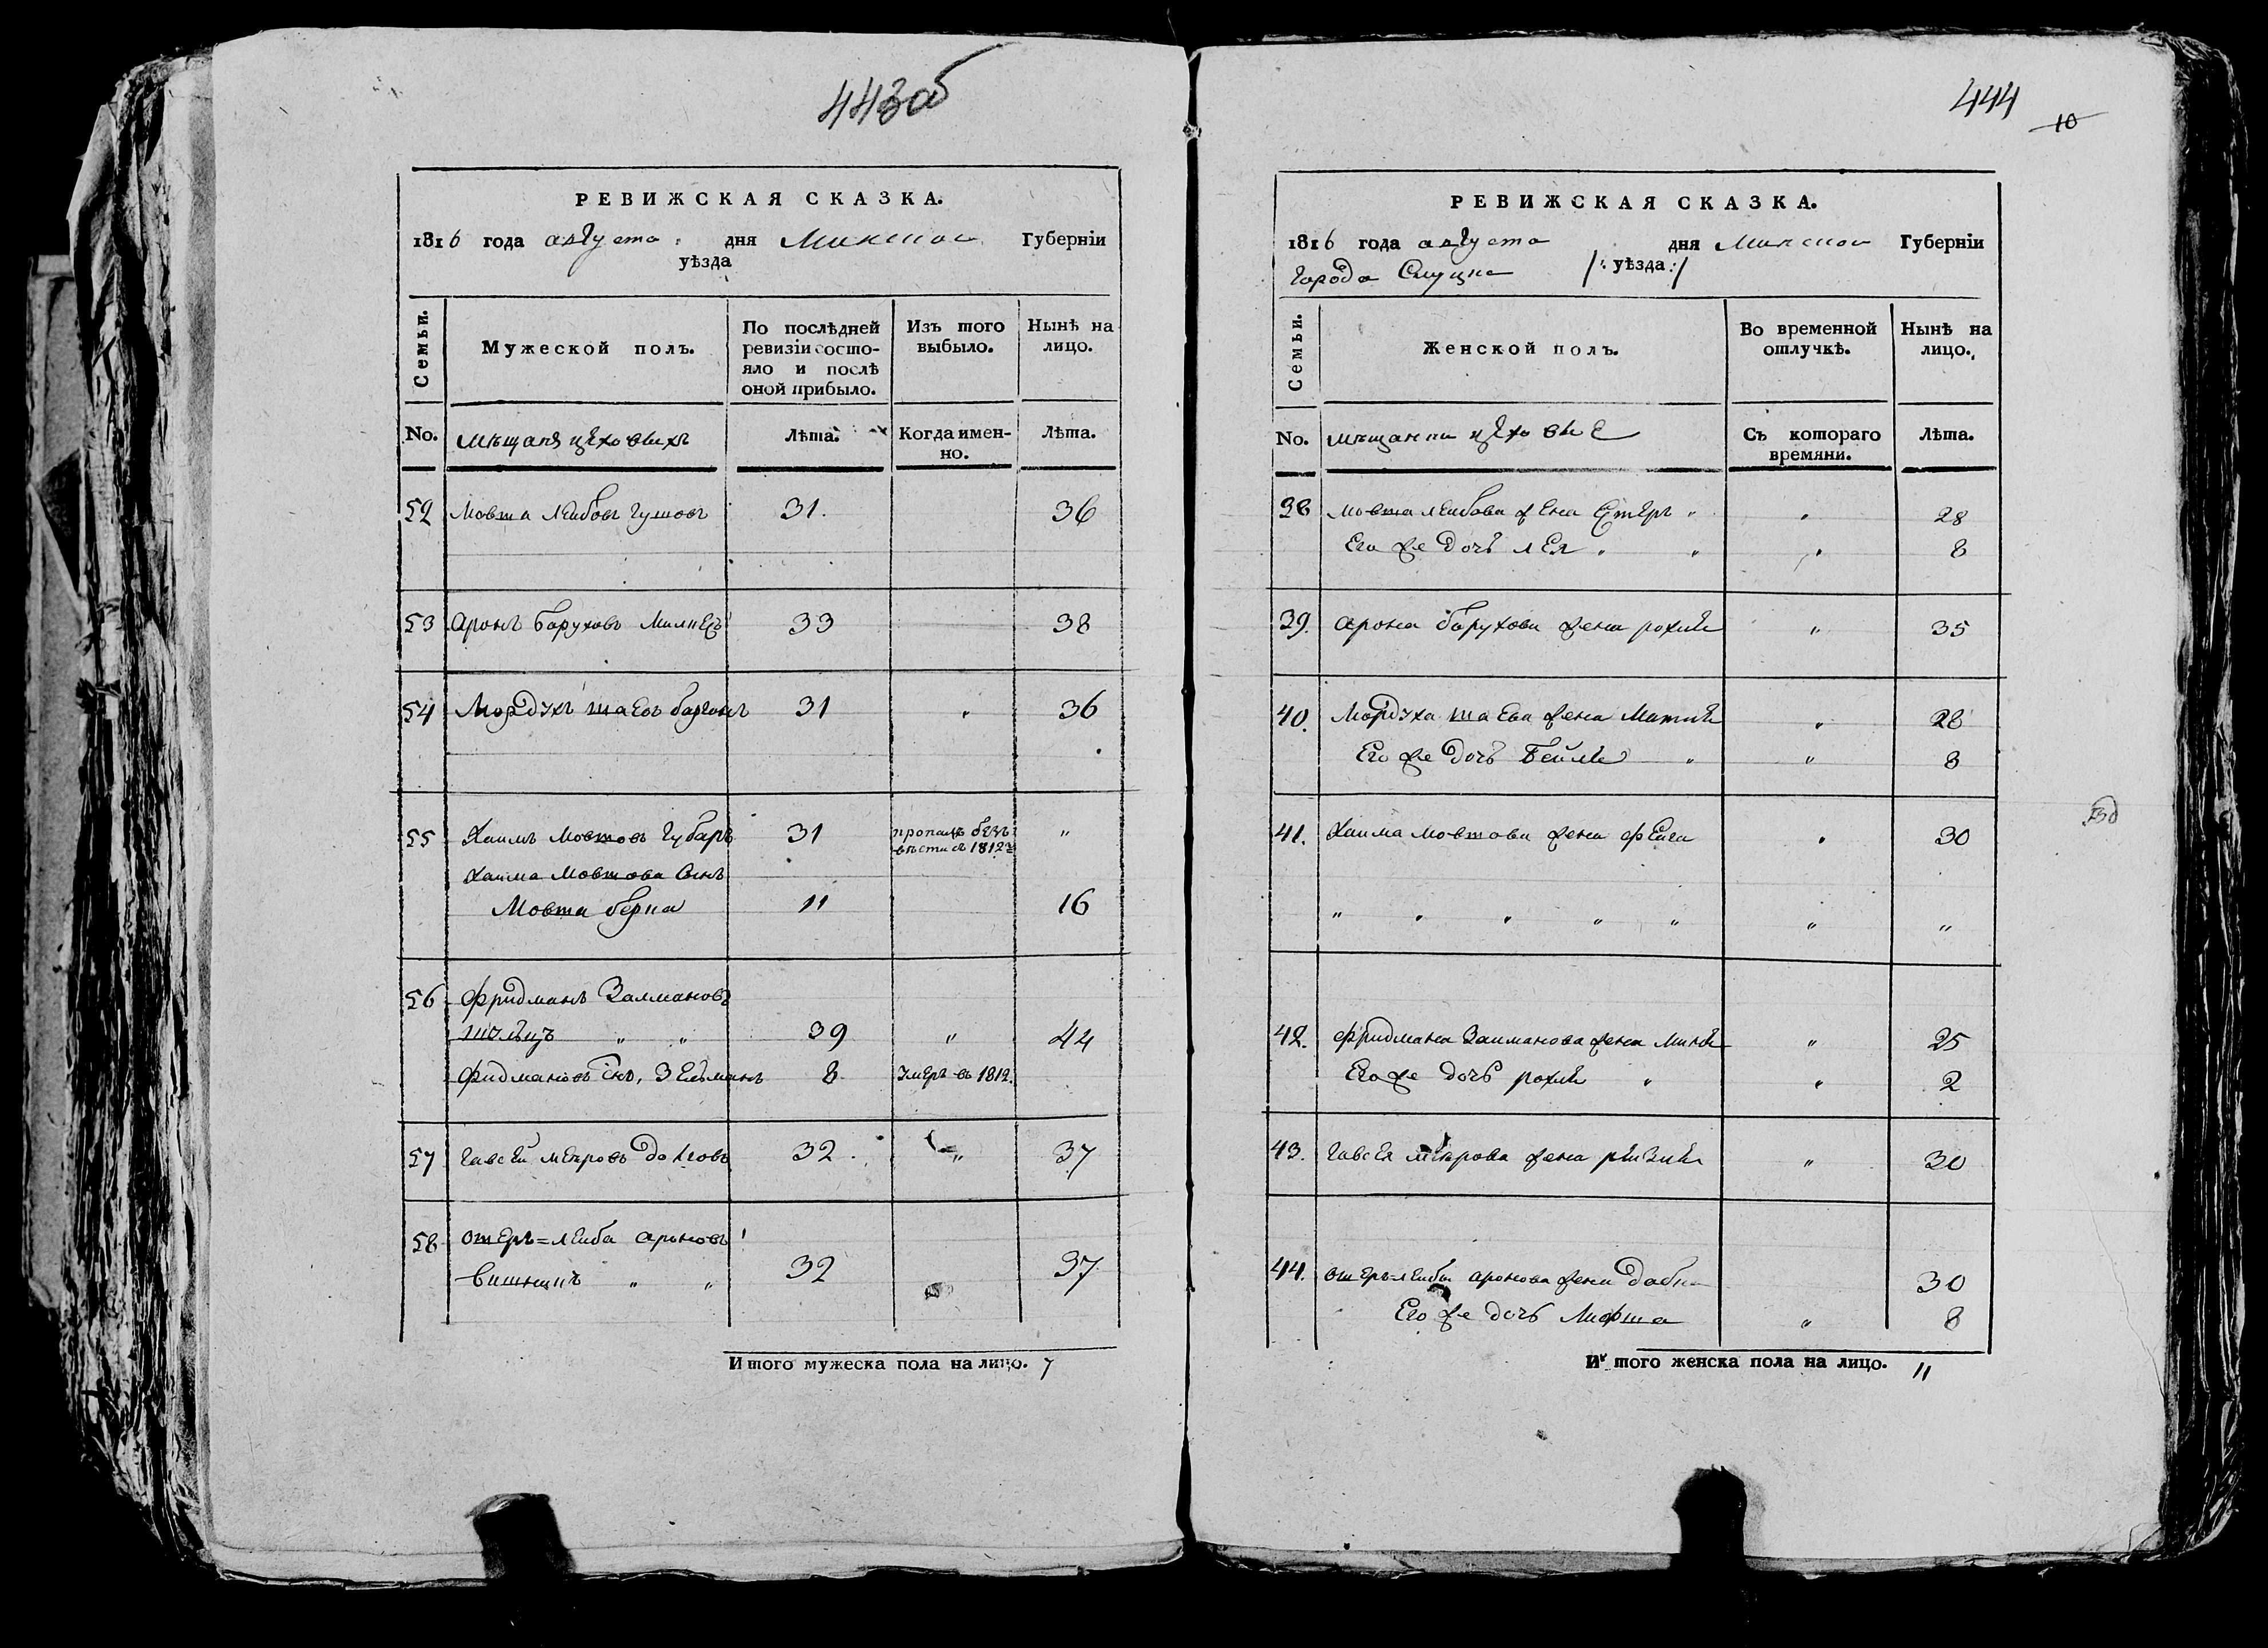 443об
РЕВИЖСКАЯ СКАЗКА.
1816 года августа дня Минской Губерніи
уѣзда
Семьи.
Мужеской полъ.
По послѣдней ревизіи состо-
яло и послѣ
оной прибыло.
Изъ того
выбыло.
Нынѣ на
лицо.
No.
мѣщаня цеховыхъ
Лѣта.
Когда имен-
но.
Лѣта.
52 Мовша Лейбовъ 31. 36
53 Аронъ Баруховъ Милнеръ 33 38
54 Мордухъ Шаевъ 31 " 36
55 Хаимъ Мовшовъ Губаръ 31 пропалъ безъ "
вѣсти въ 1812
Хаима Мовшова Сынъ
Мовша берка 11 16
56 Фридманъ Залмановъ
" " 39 " 44
Фидмановъ Снъ, Зельманъ 8 умеръ въ 1812.
57 Гавсей Меировъ Долговъ 32. " 37
58 Ошеръ=Лейба Ароновъ
" " 32 37
Итого мужеска пола на лицо. 7
444
10
РЕВИЖСКАЯ СКАЗКА.
1816 года августа дня Минской Губерніи
города Слуцка /: уѣзда :/
Семьи.
Женской полъ.
Во временной
отлучкѣ.
Нынѣ на
лицо.
No.
мѣщанки цеховые
Съ котораго
времяни.
Лѣта.
38 Мовша Лейбова жена Естеръ " " 28
Его же дочь Лея " " " 8
39. Арона Барухова жена рохля " 35
40. Мордуха Шаева жена " 28
Его же дочь Бейля " " 8
41. Хаима Мовшова жена фейга " 30
" " " " " " "
42. Фридмана Залманова жена " 25
Его же дочь рохля " " 2
43. Гавсея Меирова жена " 30
44. Ошеръ-лейбы Аронова жена 30
Его же дочь " 8
Итого женска пола на лицо. 11